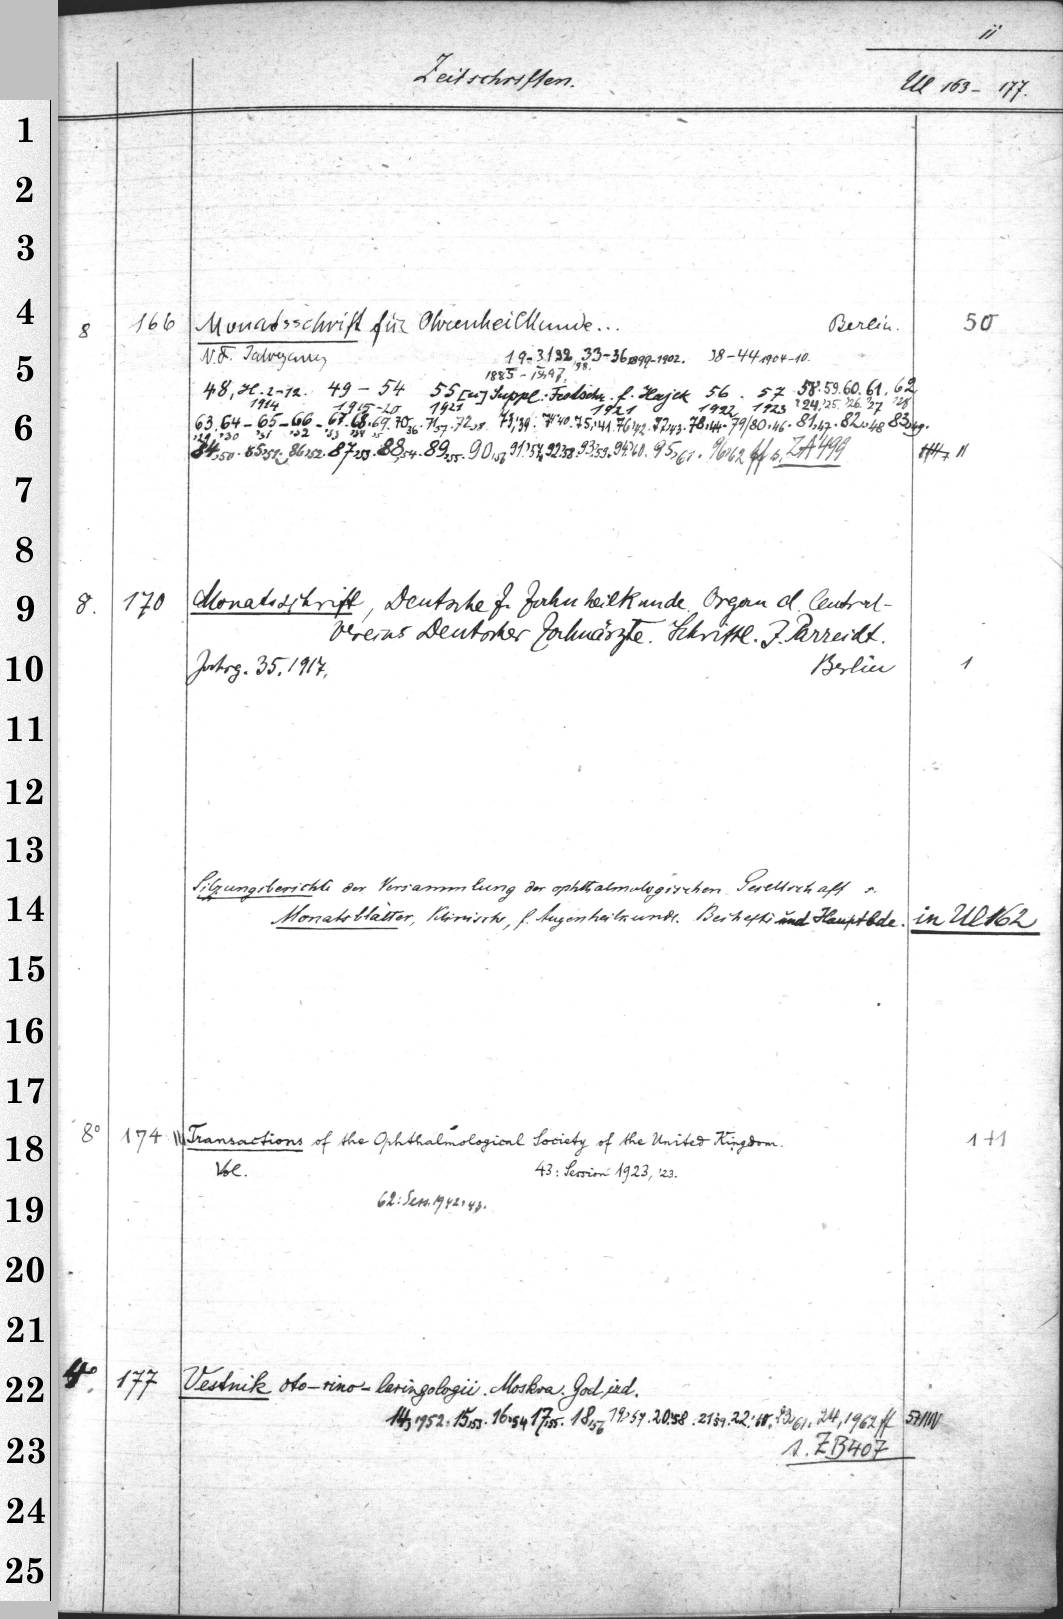 ii
Zeitschriften.
Ul 163-177.
1
2
3
4
8 166 Monatsschrift für Ohrenheilkunde... Berlin. 50
5
N.F. Jahrgang 19-31,32, 33-36 1899-1902. 38-44 1904-10.
1885-1897, 98.
48, H. 2-12. 49-54 55 [u] Suppl.: Festschr. f. Hajek 56. 57 58. 59. 60. 61. 62
1914 1915-20 1921 1921 1922 1923 '24. '25. '26. '27 '28
6
63. 64-65-66-67. 68. 69. 70,36. 71,37. 72,38. 73,39. 74,40. 75,41. 76,42. 77,43. 78,44. 79/80,46. 81,47. 82,48 83,49.
'29 '30 '31 '32 '33 '34 '35
84,50. 85,51. 86,52. 87,53. 88,54. 89,55. 90,56 91,57. 92,58. 93,59. 94,60. 95,61. 96,62 ff s. ZA 499
7
8
9
8. 170 Monatsschrift, Deutsche f. Zahnheilkunde. Organ d. Central-
Vereins Deutscher Zahnärzte. Schriftl. J. Parreidt.
10
Jahrg. 35. 1917. Berlin 1
11
12
13
Sitzungsberichte der Versammlung der ophthalmologischen Gesellschaft s.
14
Monatsblätter, Klinische, f. Augenheilkunde. Beihefte und Hauptbde. in Ul 162
15
16
17
8° 174 Transactions of the Ophthalmological Society of the United Kingdom. 1+1
18
Vol. 43: Session 1923, '23.
19
62: Sess. 1942,43.
20
21
4°. 177 Vestnik oto-rino-laringologii. Moskva. God izd.
22
14,1952. 15,53. 16,54 17,55. 18,56 19,57. 20,58. 21,59. 22,60. 23,61. 24,1962 ff
23
s. ZB 407
24
25